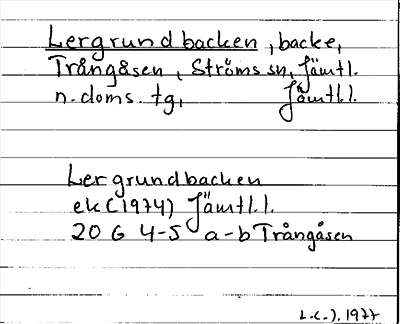 Lergrundbacken, backe,
Trångåsen, Ströms sn, Jämtl.
n. doms. tg, Jämtl.l.
Lergrundbacken
ek (1974) Jämtl.l.
20 G 4-5 a-b Trångåsen
1977